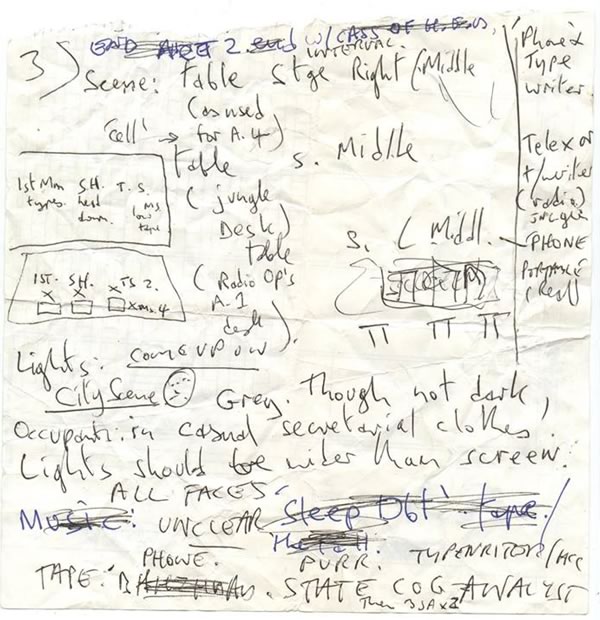 END ACT 2. END W/CASS OF
INTERVAL.
3) Scene: Table Stge Right (Middle
(as used
'Cell' → for A.4)
table S. Middle
(jungle
Desk)
table S. (Middl.
(Radio Op's
A.1
desk)
Phone &
Type
writer.
Telex or
t/writer
(radio)
jungle
PHONE
1st Mm S.H. T.S.
types. head
down. low
tape
1ST. S.H. TS 2.
X X X
xms.4
Lights: COME UP ON
City Scene Grey. Though not dark,
Occupants in casual secretarial clothes.
Lights should be wider than screen.
ALL FACES
Music: UNCLEAR Sleep Dbt' tape.
PHONE. PURR. TYPEWRITOR/
TAPE: STATE COG ANALYST
Then